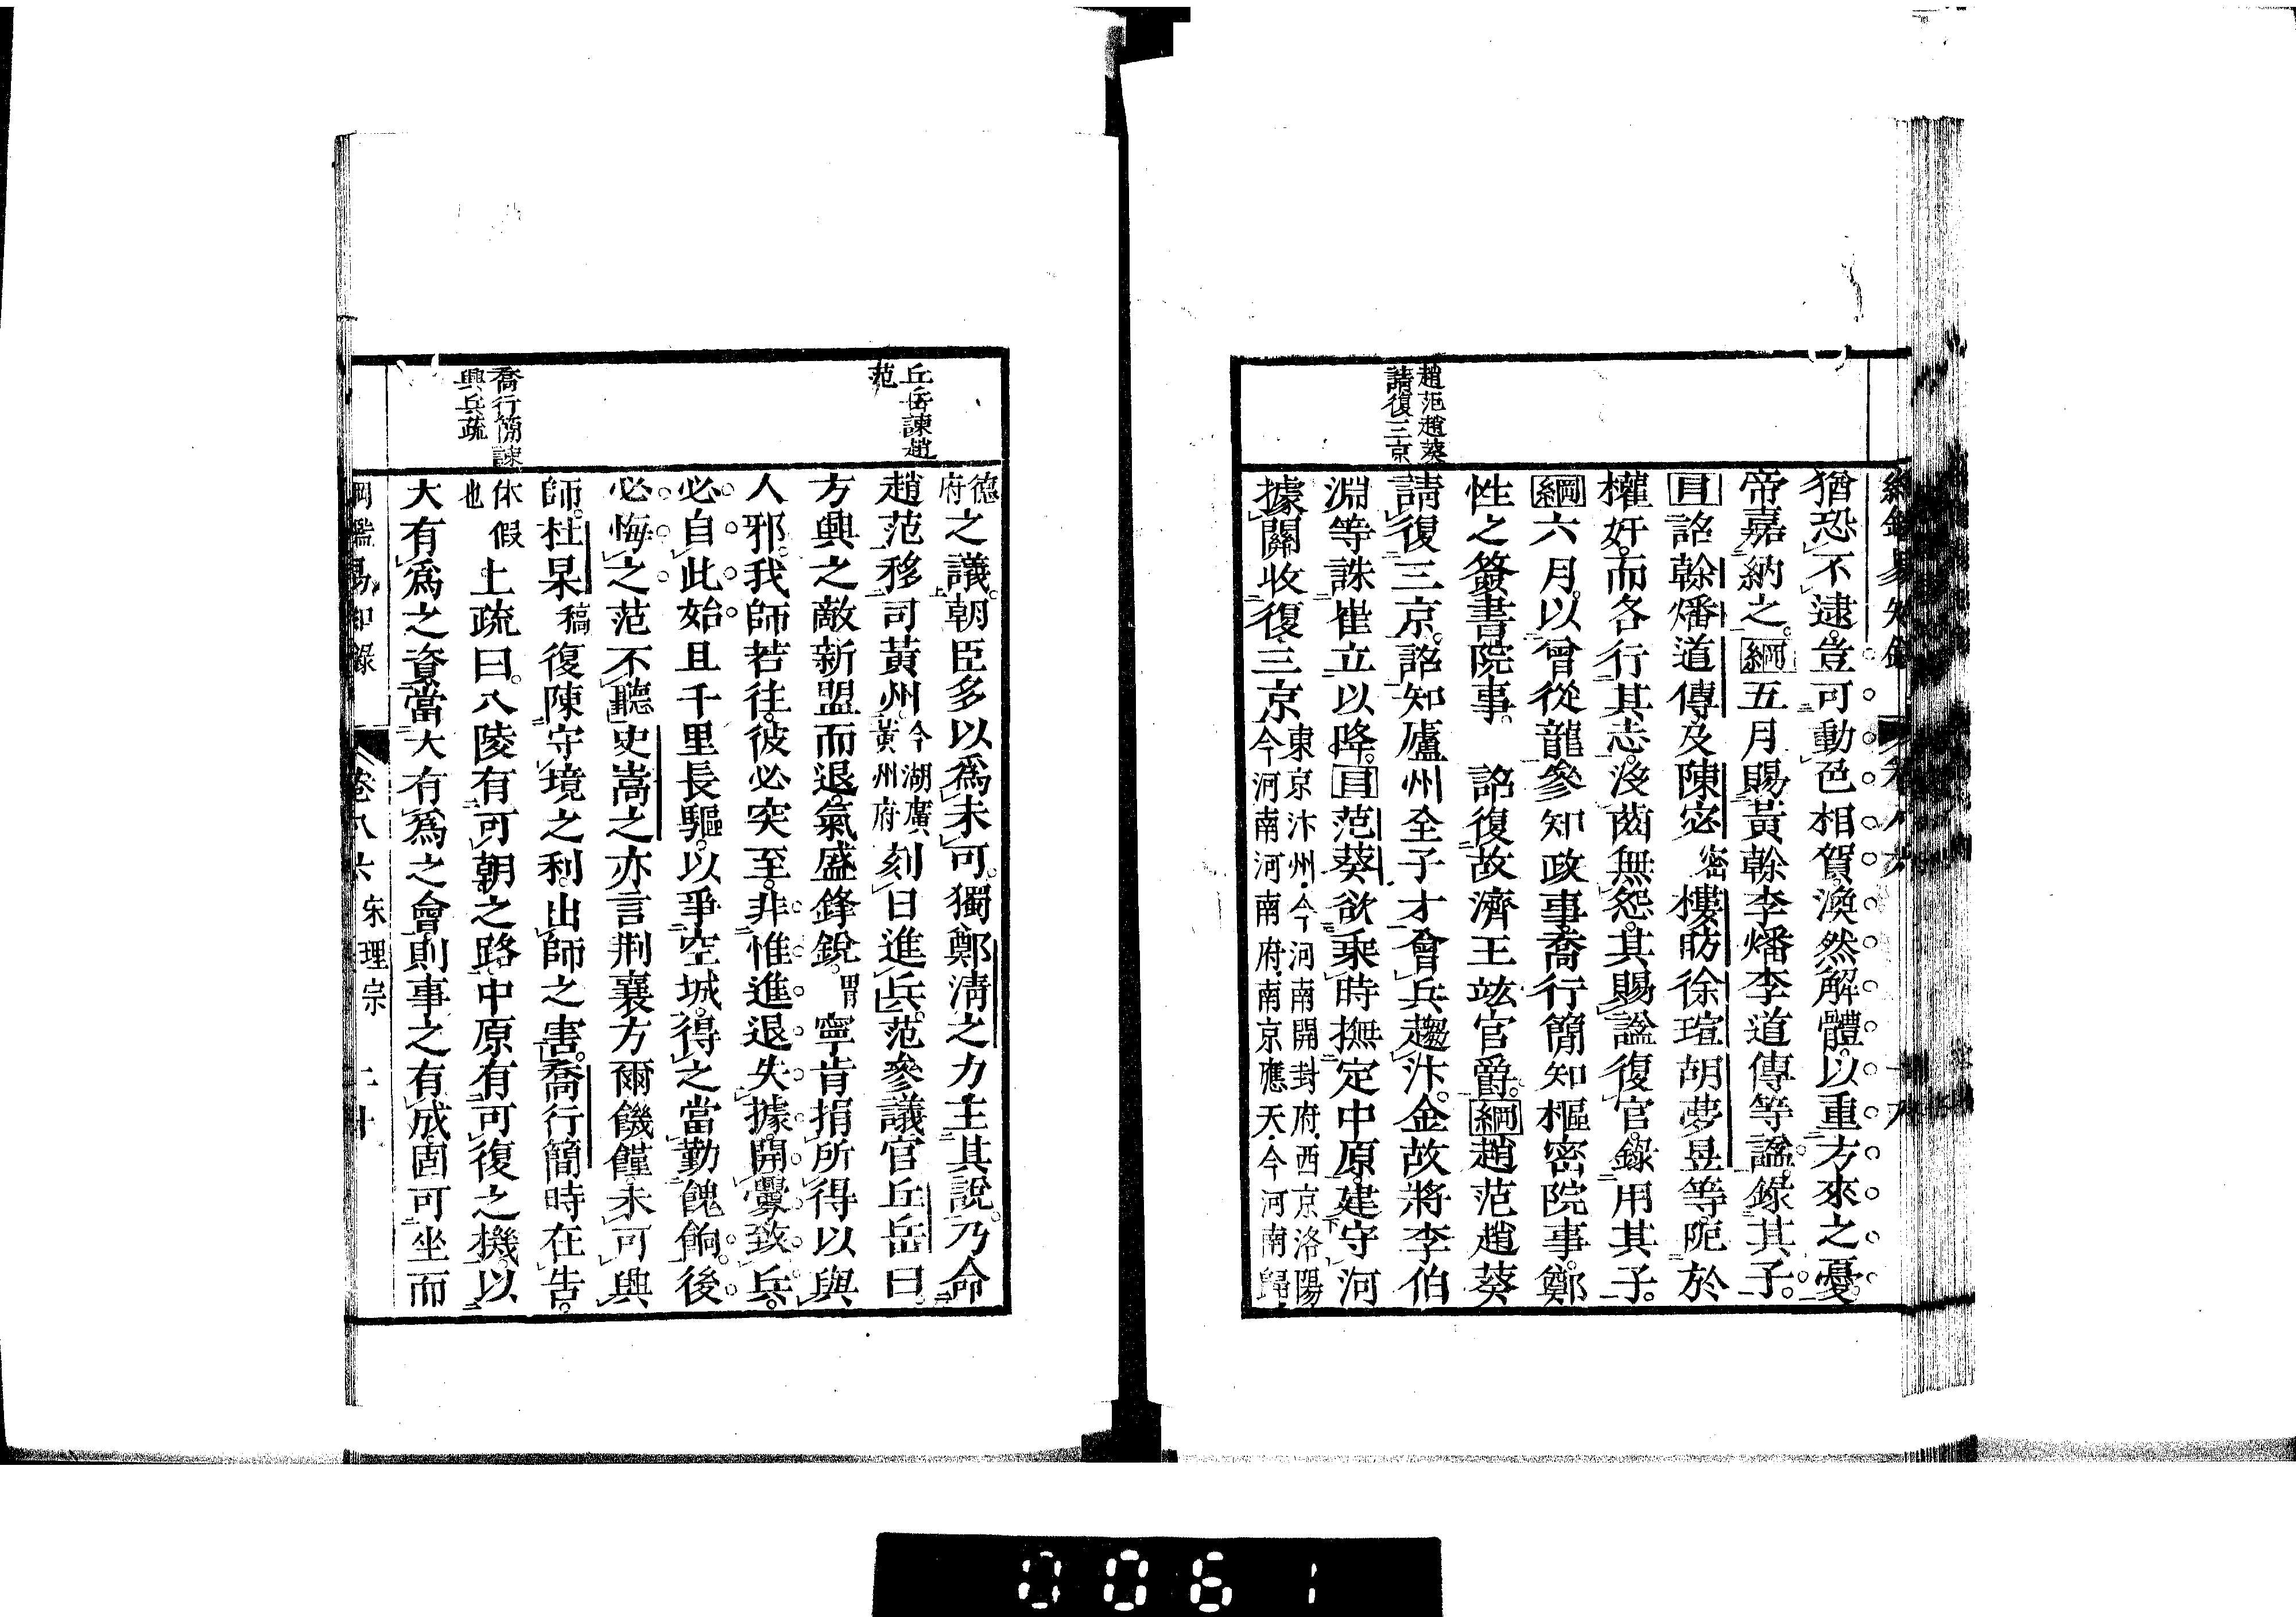 猶恐不逮。豈可動色相賀。渙然解體。以重方來之憂。
帝嘉納之。綱五月賜黃榦李燔李道傳等諡。錄其子。
目詔榦燔道傳及陳宓密樓昉徐瑄胡夢昱等。阨於
權奸。而各行其志。沒齒無怨。其賜諡復官。錄用其子。
綱六月。以曾從龍參知政事。喬行簡知樞密院事。鄭
性之簽書院事。 詔復故濟王竑官爵。綱趙范趙葵
請復三京。詔知廬州全子才會兵趨汴。金故將李伯
淵等誅崔立以降。目范葵欲乘時撫定中原。建守河
據關收復三京
東京汴州今河南開封府西京洛陽
今河南河南府南京應天今河南歸
趙范趙葵
請復三京
德
府
之議。朝臣多以爲未可。獨鄭清之力主其說。乃命
趙范移司黃州。
今湖廣
黃州府
刻日進兵。范參議官丘岳曰。
方興之敵新盟而退。氣盛鋒銳。胃寧肯捐所得以與
人邪。我師若往。彼必突至。非惟進退失據。開釁致兵。
必自此始。且千里長驅。以爭空城。得之當勤餽餉。後
必悔之。范不聽。史嵩之亦言荆襄方爾饑饉。未可興
師。杜杲稿復陳守境之利。出師之害。喬行簡時在告。
休假
也
上疏曰。八陵有可朝之路。中原有可復之機。以
大有爲之資。當大有爲之會。則事之有成。固可坐而
丘岳諫趙
范
喬行簡諫
興兵疏
綱鑑易知錄 卷八六 宋理宗 二十
0061